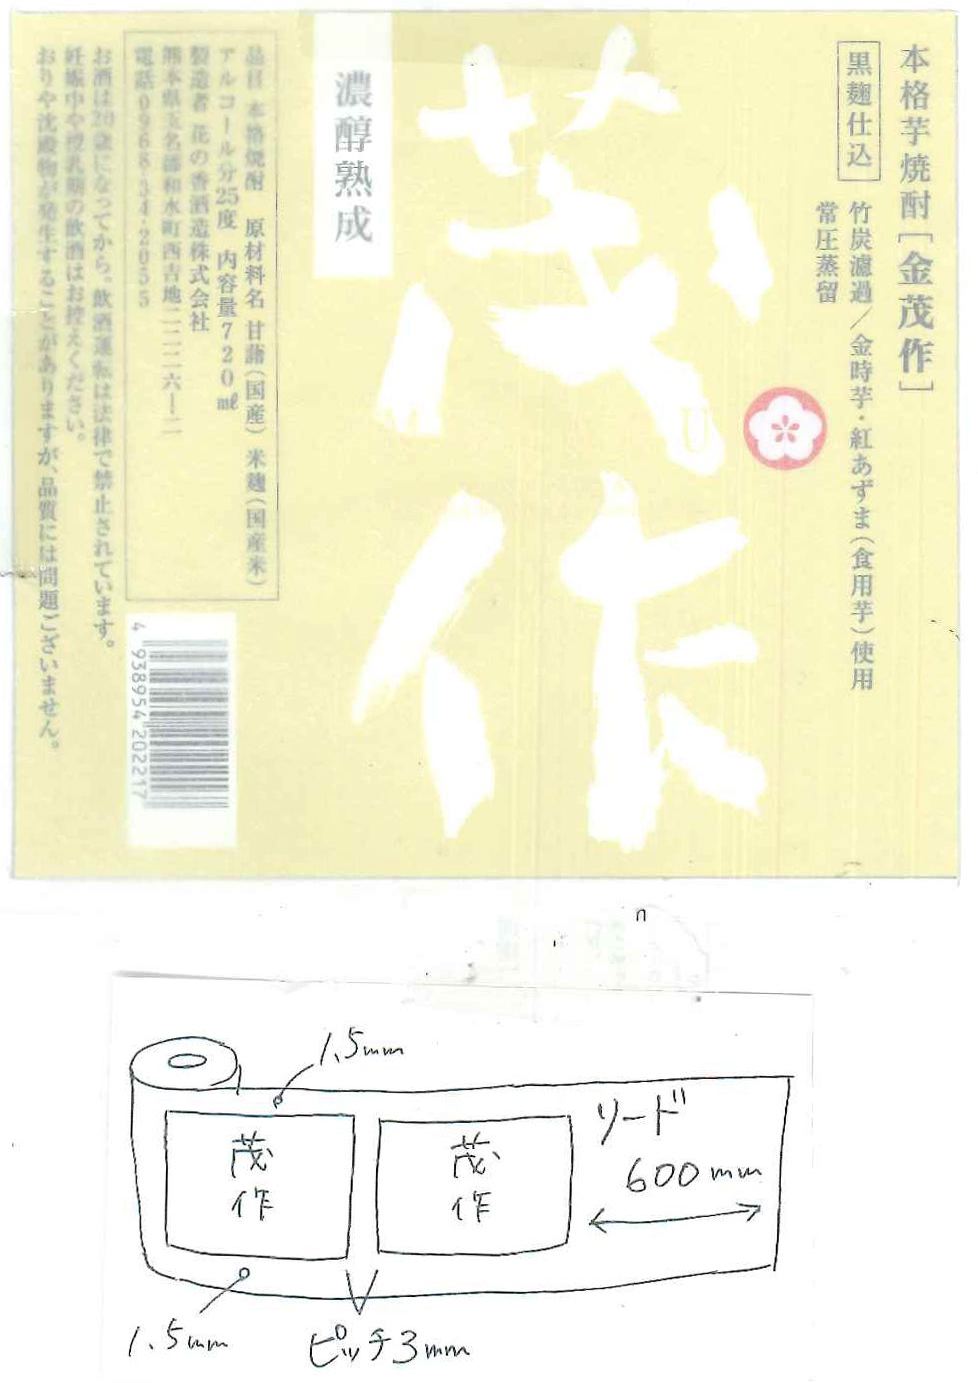 本格芋焼酎［金茂作］
黒麹仕込
竹炭濾過／金時芋・紅あずま（食用芋）使用
常圧蒸留
茂作
濃醇熟成
品目 本格焼酎 原材料名 甘藷（国産） 米麹（国産米）
アルコール分25度 内容量720㎖
製造者 花の香酒造株式会社
熊本県玉名郡和水町西吉地二二二六－二
電話0968-34-2055
お酒は20歳になってから。飲酒運転は法律で禁止されています。
妊娠中や授乳期の飲酒はお控えください。
おりや沈殿物が発生することがありますが、品質には問題ございません。
4 938954 202217
1.5mm
茂作
茂作
リード
600mm
1.5mm
ピッチ3mm